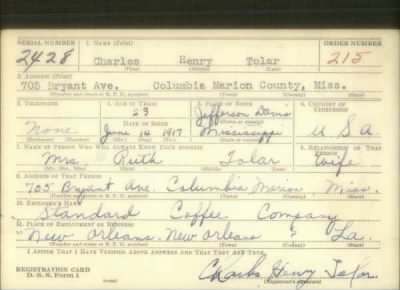 SERIAL NUMBER 1. NAME (Print) ORDER NUMBER
2428 Charles Henry Tolar 215
(First) (Middle) (Last)
2. ADDRESS (Print)
705 Bryant Ave. Columbia Marion County, Miss.
(Number and street or R. F. D. number) (Town) (County) (State)
3. TELEPHONE 4. AGE IN YEARS 5. PLACE OF BIRTH 6. COUNTRY OF CITIZENSHIP
23 Jefferson Davis
None DATE OF BIRTH (Town or county)
June 14 1917 Mississippi U S A.
(Exchange) (Number) (Mo.) (Day) (Yr.) (State or country)
7. NAME OF PERSON WHO WILL ALWAYS KNOW YOUR ADDRESS 8. RELATIONSHIP OF THAT PERSON
Mrs. Ruth Tolar Wife
(Mr., Mrs., Miss) (First) (Middle) (Last)
9. ADDRESS OF THAT PERSON
705 Bryant Ave. Columbia Marion Miss.
(Number and street or R. F. D. number) (Town) (County) (State)
10. EMPLOYER'S NAME
Standard Coffee Company
11. PLACE OF EMPLOYMENT OR BUSINESS
New Orleans New Orleans La.
(Number and street or R. F. D. number) (Town) (County) (State)
I AFFIRM THAT I HAVE VERIFIED ABOVE ANSWERS AND THAT THEY ARE TRUE.
REGISTRATION CARD
D. S. S. Form 1 Charles Henry Tolar
(Registrant's signature)